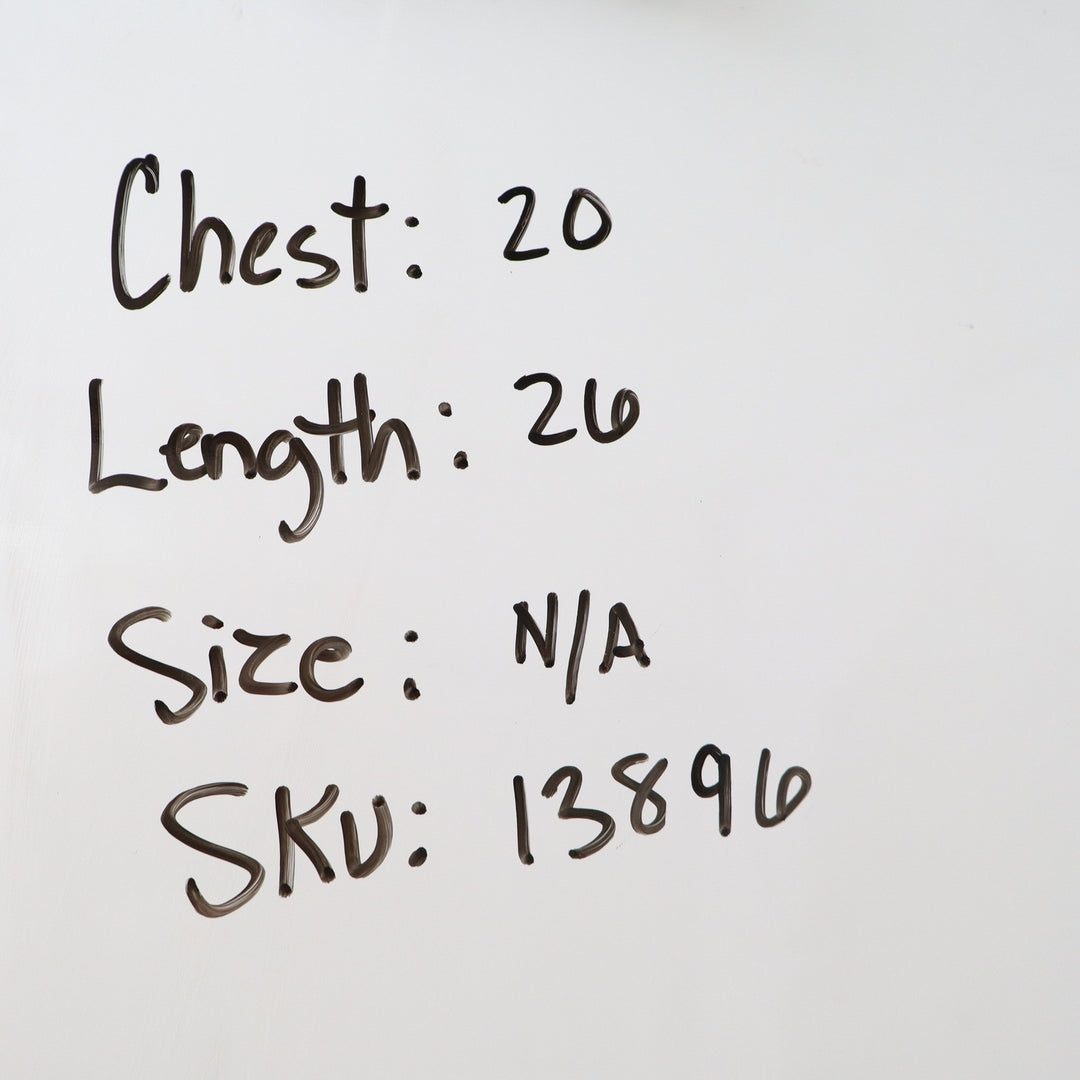 Chest: 20
Length: 26
Size: N/A
SKU: 13896